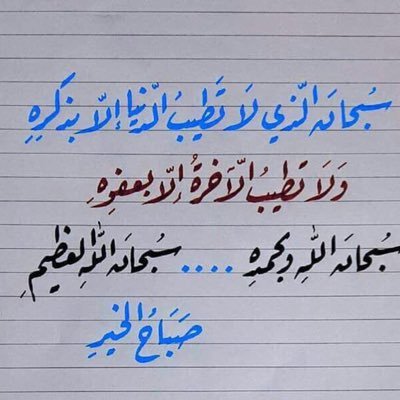 سُبحانه الّذي لَا تَطيبُ الدّنيا إلّا بذكرِهِ
وَلَا تطيبُ الآخرةُ إلّا بعفوِهِ
سُبحانَ اللّهِ وبحمدِهِ .... سُبحانَ اللّهِ العظيمِ
صَبَاحُ الخيرِ